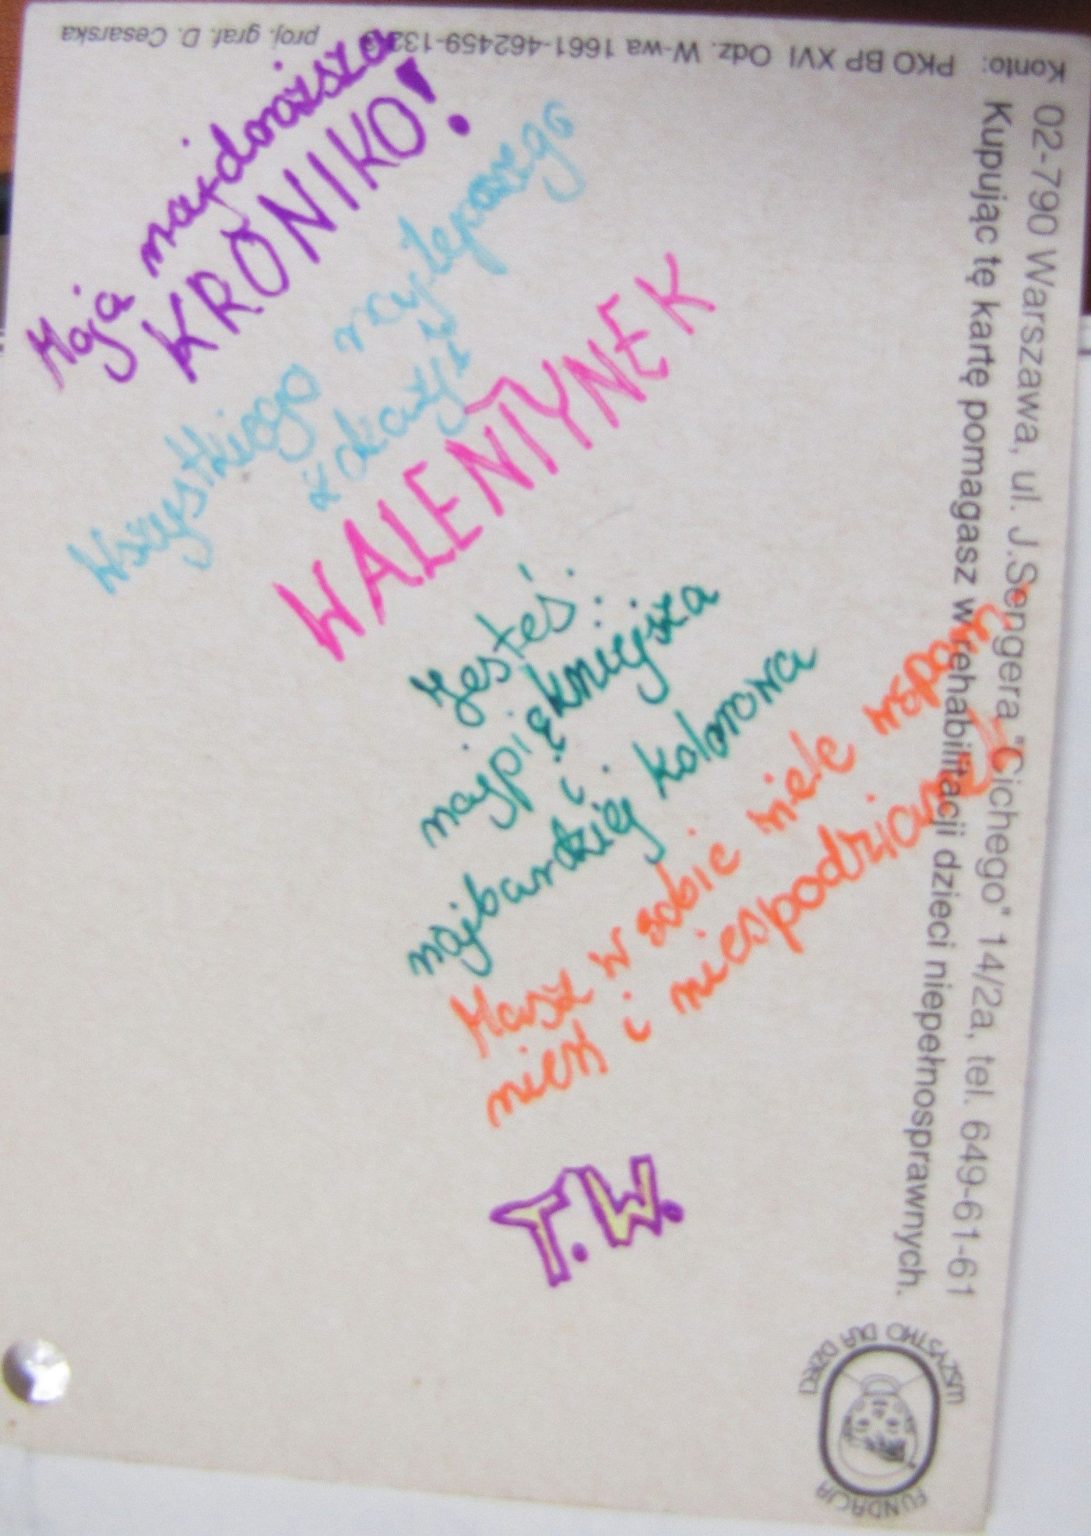 Moja najdroższa
KRONIKO!
Wszystkiego najlepszego
z okazji
WALENTYNEK
Jesteś:
najpiękniejsza
i
najbardziej kolorowa
Masz w sobie wiele wspom-
nień i niespodzianek
T.W.
FUNDACJA
WSZYSTKO DLA DZIECI
Kupując tę kartę pomagasz w rehabilitacji dzieci niepełnosprawnych.
02-790 Warszawa, ul. J.Sengera "Cichego" 14/2a, tel. 649-61-61
Konto: PKO BP XVI Odz. W-wa 1661-462459-132
proj. graf. D. Cesarska